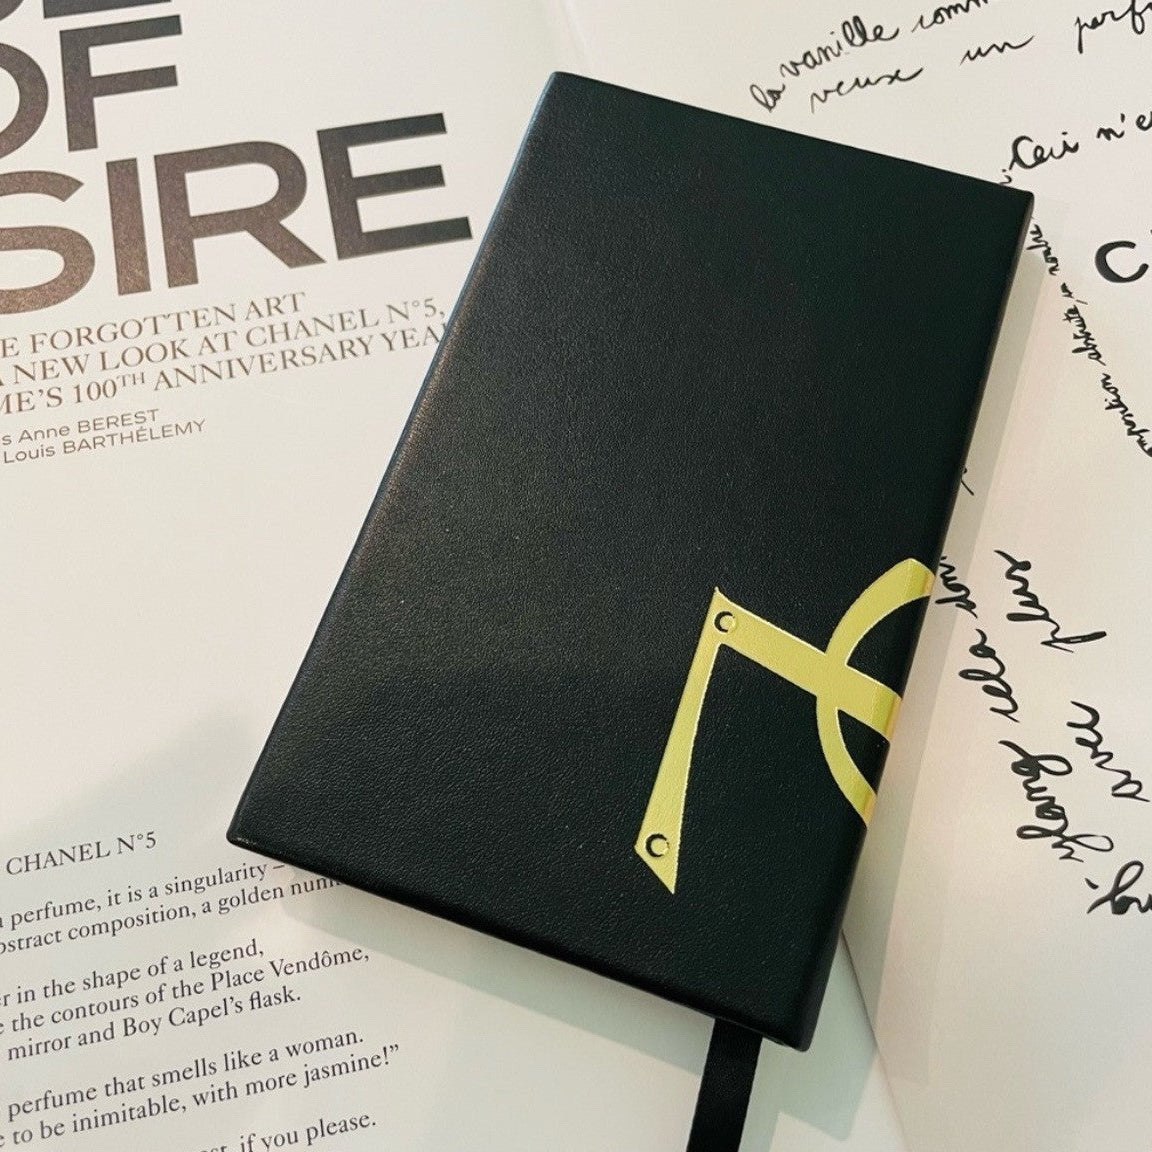 OF
SIRE
E FORGOTTEN ART
A NEW LOOK AT CHANEL N°5,
ME'S 100TH ANNIVERSARY YEA
s Anne BEREST
Louis BARTHÉLEMY
CHANEL N°5
perfume, it is a singularity –
bstract composition, a golden num
r in the shape of a legend,
e the contours of the Place Vendôme,
mirror and Boy Capel's flask.
perfume that smells like a woman.
e to be inimitable, with more jasmine!”
if you please.
la vanille comm
veux un parf
Ceci n'e
C'
composition abstraite, un nombre
ylang cela don
avec plus